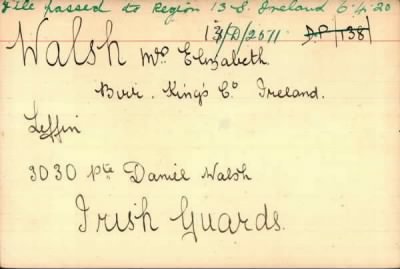 File passed to Region 13 S. Ireland 6.4.20
13/D/2071 D.P./138/
Walsh Mrs Elizabeth.
Birr. King's Co Ireland.
Leffin
3030 Pte Daniel Walsh
Irish Guards.